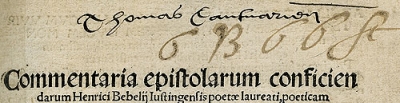 Thomas Cantuarien
6 B 6 6 St
Commentaria epistolarum conficien
darum Henrici Bebelij Iustingensis poetæ laureati, poeticam